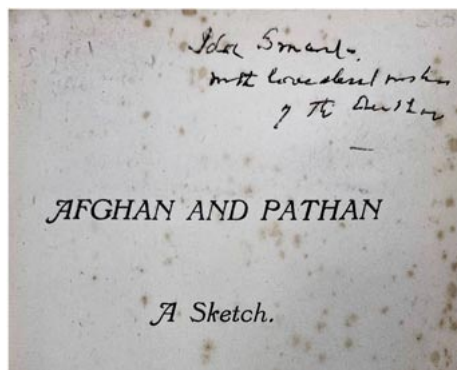 Ida Smart.
with love and best wishes
of the Author
AFGHAN AND PATHAN
A Sketch.